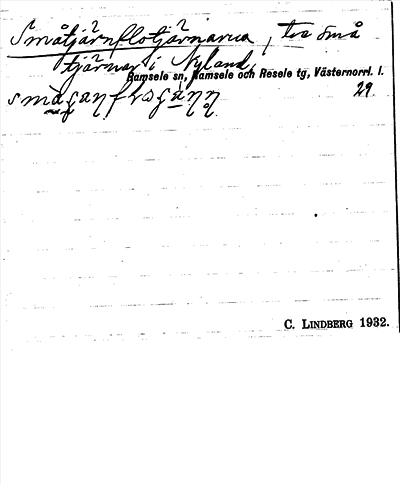 Småtjärnflotjärnarna, två små
tjärnar i Nyland,
Ramsele sn, Ramsele och Resele tg, Västernorrl. l.
29.
C. LINDBERG 1932.